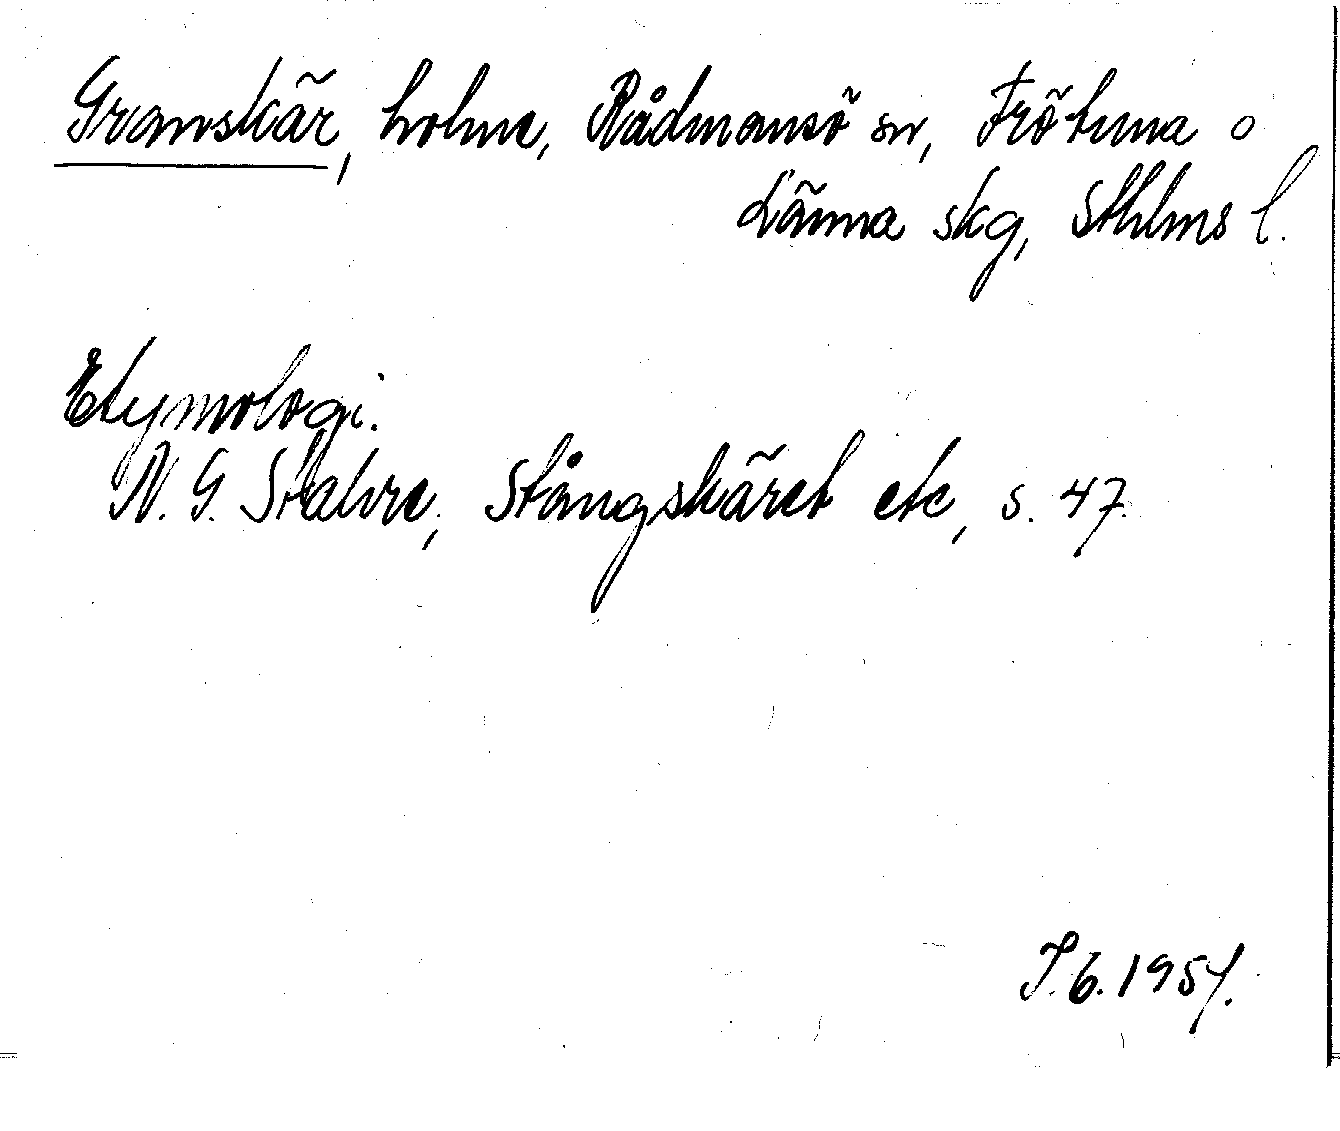 Granskär, holme, Rådmansö sn, Frötuna o
Länna skg, Sthlms l.
Etymologi.
N. G. Stahre, Stångskäret etc, s. 47.
J. 6. 1957.